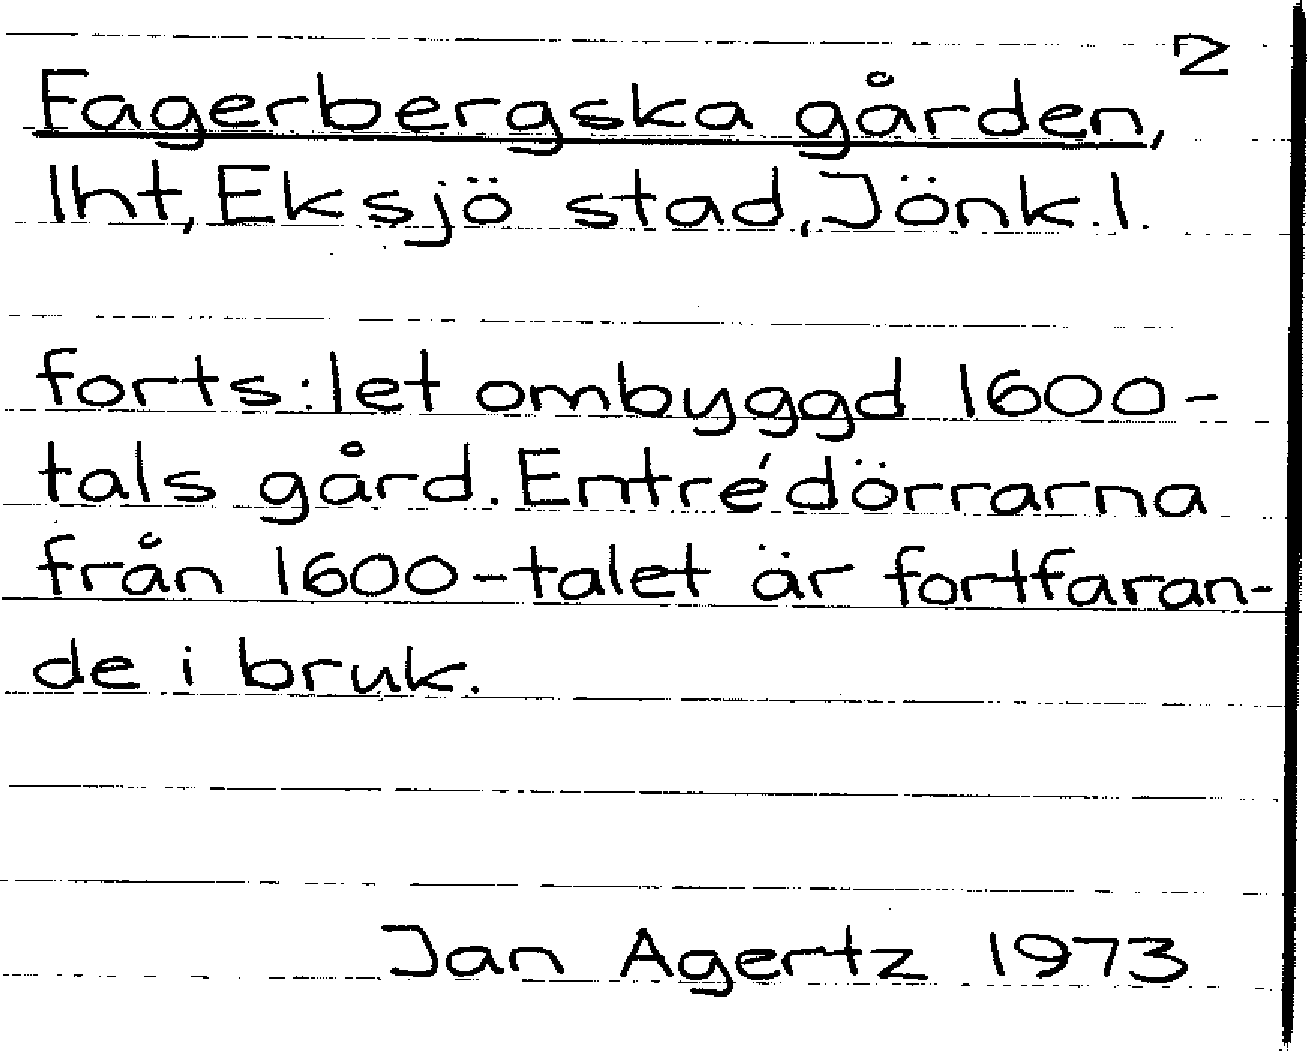 2
Fagerbergska gården,
lht, Eksjö stad, Jönk.l.
forts:let ombyggd 1600-
tals gård. Entrédörrarna
från 1600-talet är fortfaran-
de i bruk.
Jan Agertz 1973